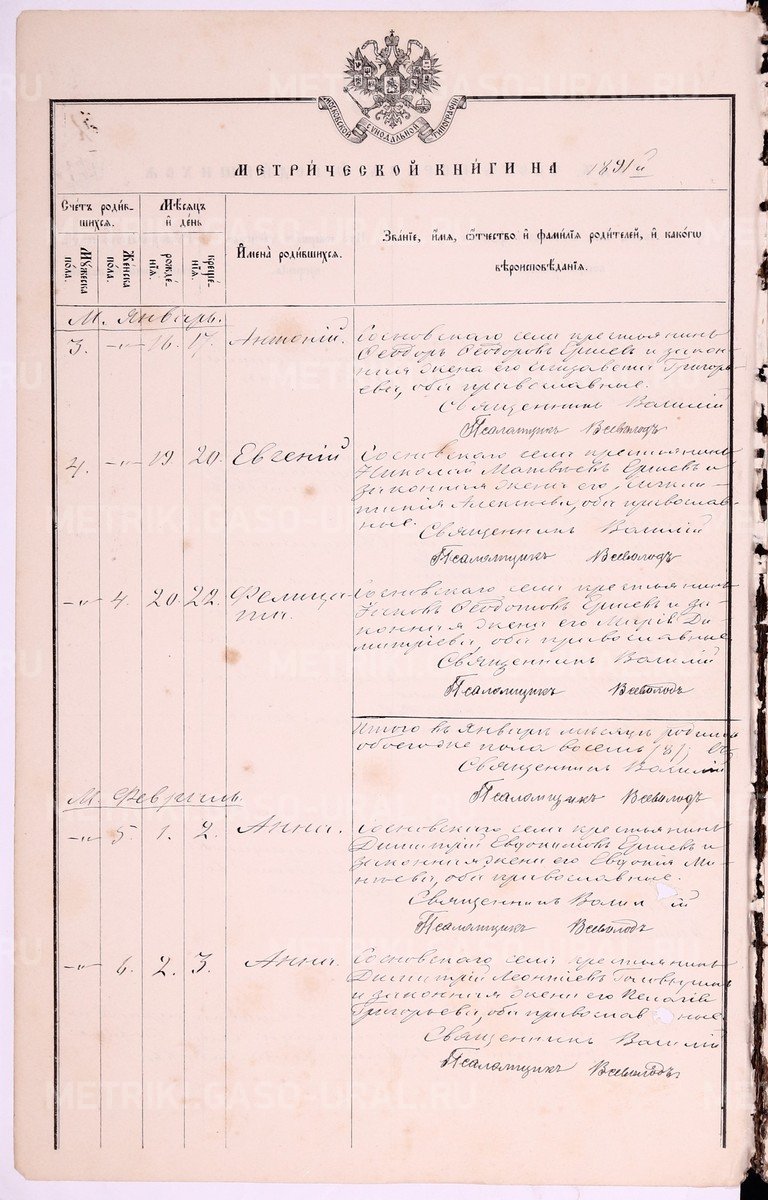 МОСКОВСКОЙ СѴНОДАЛЬНОЙ ТИПОГРАФІИ
МЕТРИ́ЧЕСКОЙ КНИ́ГИ НА 1891й
Сче́тъ роди́вшихся.
Мѣ́сяцъ и҆ де́нь
И҆мена̀ роди́вшихся.
Зва́нїе, и҆́мя, ѻ҆́тчество и҆ фами́лїя роди́телей, и҆ како́гѡ
вѣроисповѣ́данїя.
Мꙋ́жеска по́ла.
Же́нска по́ла.
рожде́нїя.
креще́нїя.
М. Январь.
3. -„- 16. 17. Антоній. Сосновскаго села крестьянинъ
Ѳеодоръ Ѳеодоровъ Ершевъ и закон-
ная жена его Елизавета Григорь-
ева, оба православные.
Священникъ Василій
Псаломщикъ Всеволодъ
4. -„- 19. 20. Евгеній Сосновскаго села крестьянинъ
Николай Матвѣевъ Ершевъ и
законная жена его
Алексѣева, оба православ-
ные.
Священникъ Василій
Псаломщикъ Всеволодъ
-„- 4. 20. 22. Фелица- Сосновскаго села крестьянинъ
та. Яковъ Ѳеодотовъ Ершевъ и за-
конная жена его Марія Ди-
митріева, оба православные
Священникъ Василій
Псаломщикъ Всеволодъ
Итого въ Январѣ мѣсяцѣ родилось
обоего же пола восемь /8/
Священникъ Василій
Псаломщикъ Всеволодъ
М. Февраль.
-„- 5. 1. 2. Анна. Сосновскаго села крестьянинъ
Димитрій Евдокимовъ Ершевъ и
законная жена его Евдокія Ма-
твѣева, оба православные.
Священникъ Васил ій
Псаломщикъ Всеволодъ
-„- 6. 2. 3. Анна. Сосновскаго села крестьянинъ
Димитрій Леонтіевъ
и законная жена его Пелагія
Григорьева, оба православ ные
Священникъ Василій
Псаломщикъ Всеволодъ
METRIK-GASO-URAL.RU